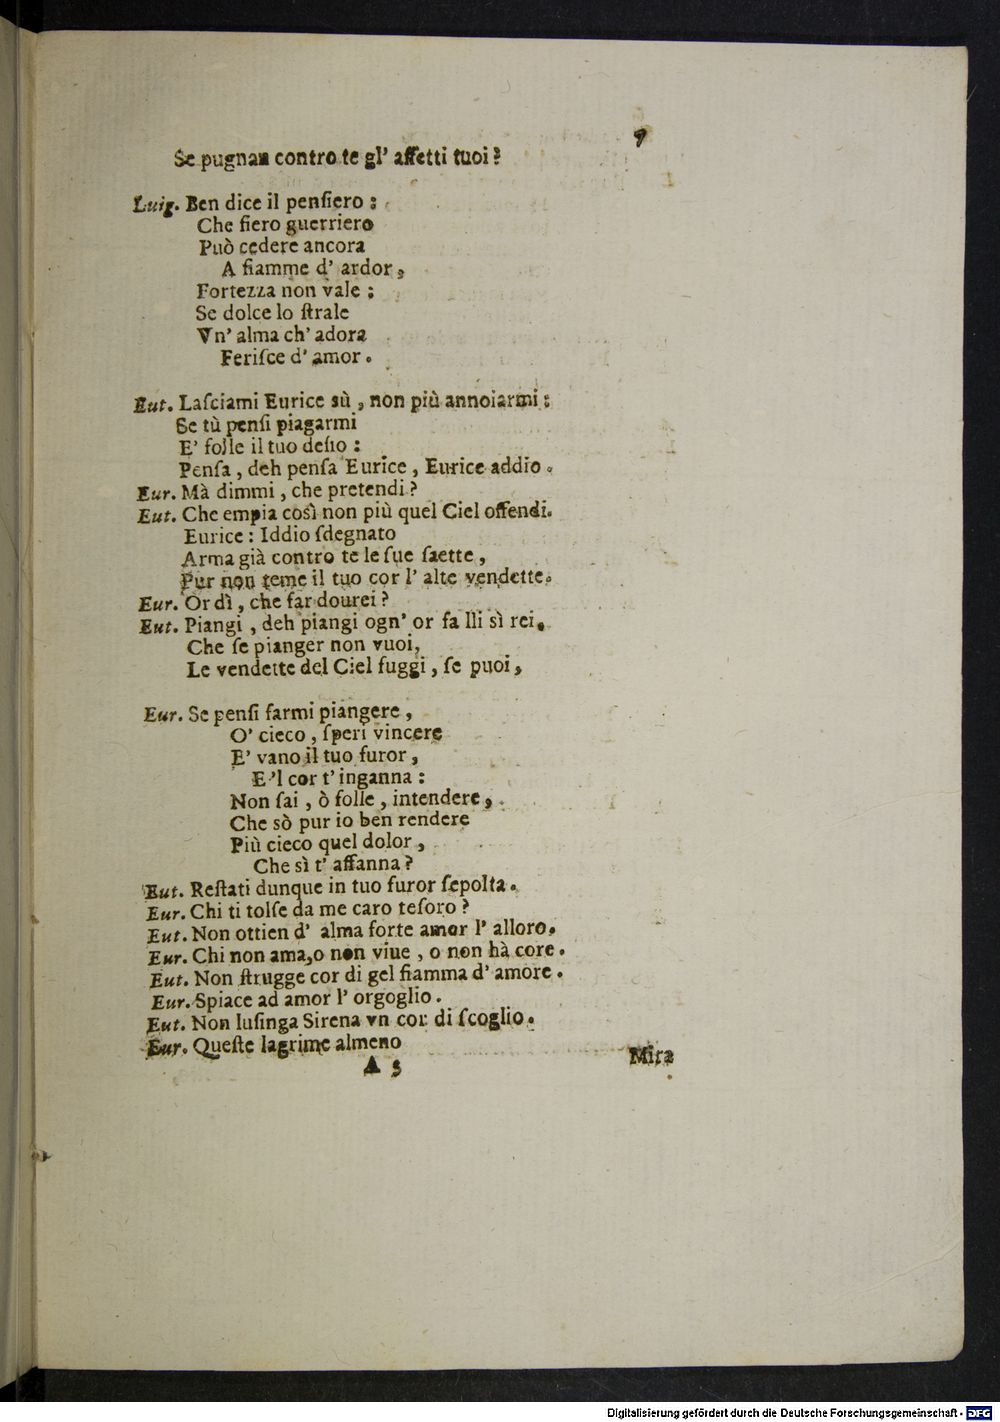 9
Se pugnan contro te gl' affetti tuoi?
Luig. Ben dice il penſiero:
Che fiero guerriero
Può cedere ancora
A fiamme d' ardor,
Fortezza non vale;
Se dolce lo ſtrale
Vn' alma ch' adora
Feriſce d' amor.
Eut. Laſciami Eurice sù, non più annoiarmi:
Se tù penſi piagarmi
E' folle il tuo deſio:
Penſa, deh penſa Eurice, Eurice addio.
Eur. Mà dimmi, che pretendi?
Eut. Che empia così non più quel Ciel offendi.
Eurice: Iddio ſdegnato
Arma già contro te le ſue ſaette,
Pur non teme il tuo cor l' alte vendette.
Eur. Or dì, che far dourei?
Eut. Piangi, deh piangi ogn' or fa lli sì rei,
Che ſe pianger non vuoi,
Le vendette del Ciel fuggi, ſe puoi,
Eur. Se penſi farmi piangere,
O' cieco, ſperi vincere
E' vano il tuo furor,
E 'l cor t' inganna:
Non ſai, ò folle, intendere,
Che sò pur io ben rendere
Più cieco quel dolor,
Che sì t' affanna?
Eut. Reſtati dunque in tuo furor ſepolta.
Eur. Chi ti tolſe da me caro teſoro?
Eut. Non ottien d' alma forte amor l' alloro.
Eur. Chi non ama,o non viue, o non hà core.
Eut. Non ſtrugge cor di gel fiamma d' amore.
Eur. Spiace ad amor l' orgoglio.
Eut. Non luſinga Sirena vn cor di ſcoglio.
Eur. Queſte lagrime almeno
A 5
Mira
Digitalisierung gefördert durch die Deutsche Forschungsgemeinschaft - DFG